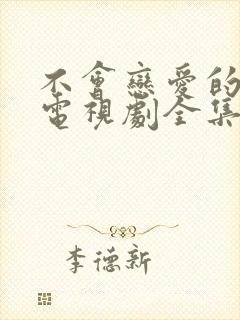 不會戀愛的
電視劇全集
李德新